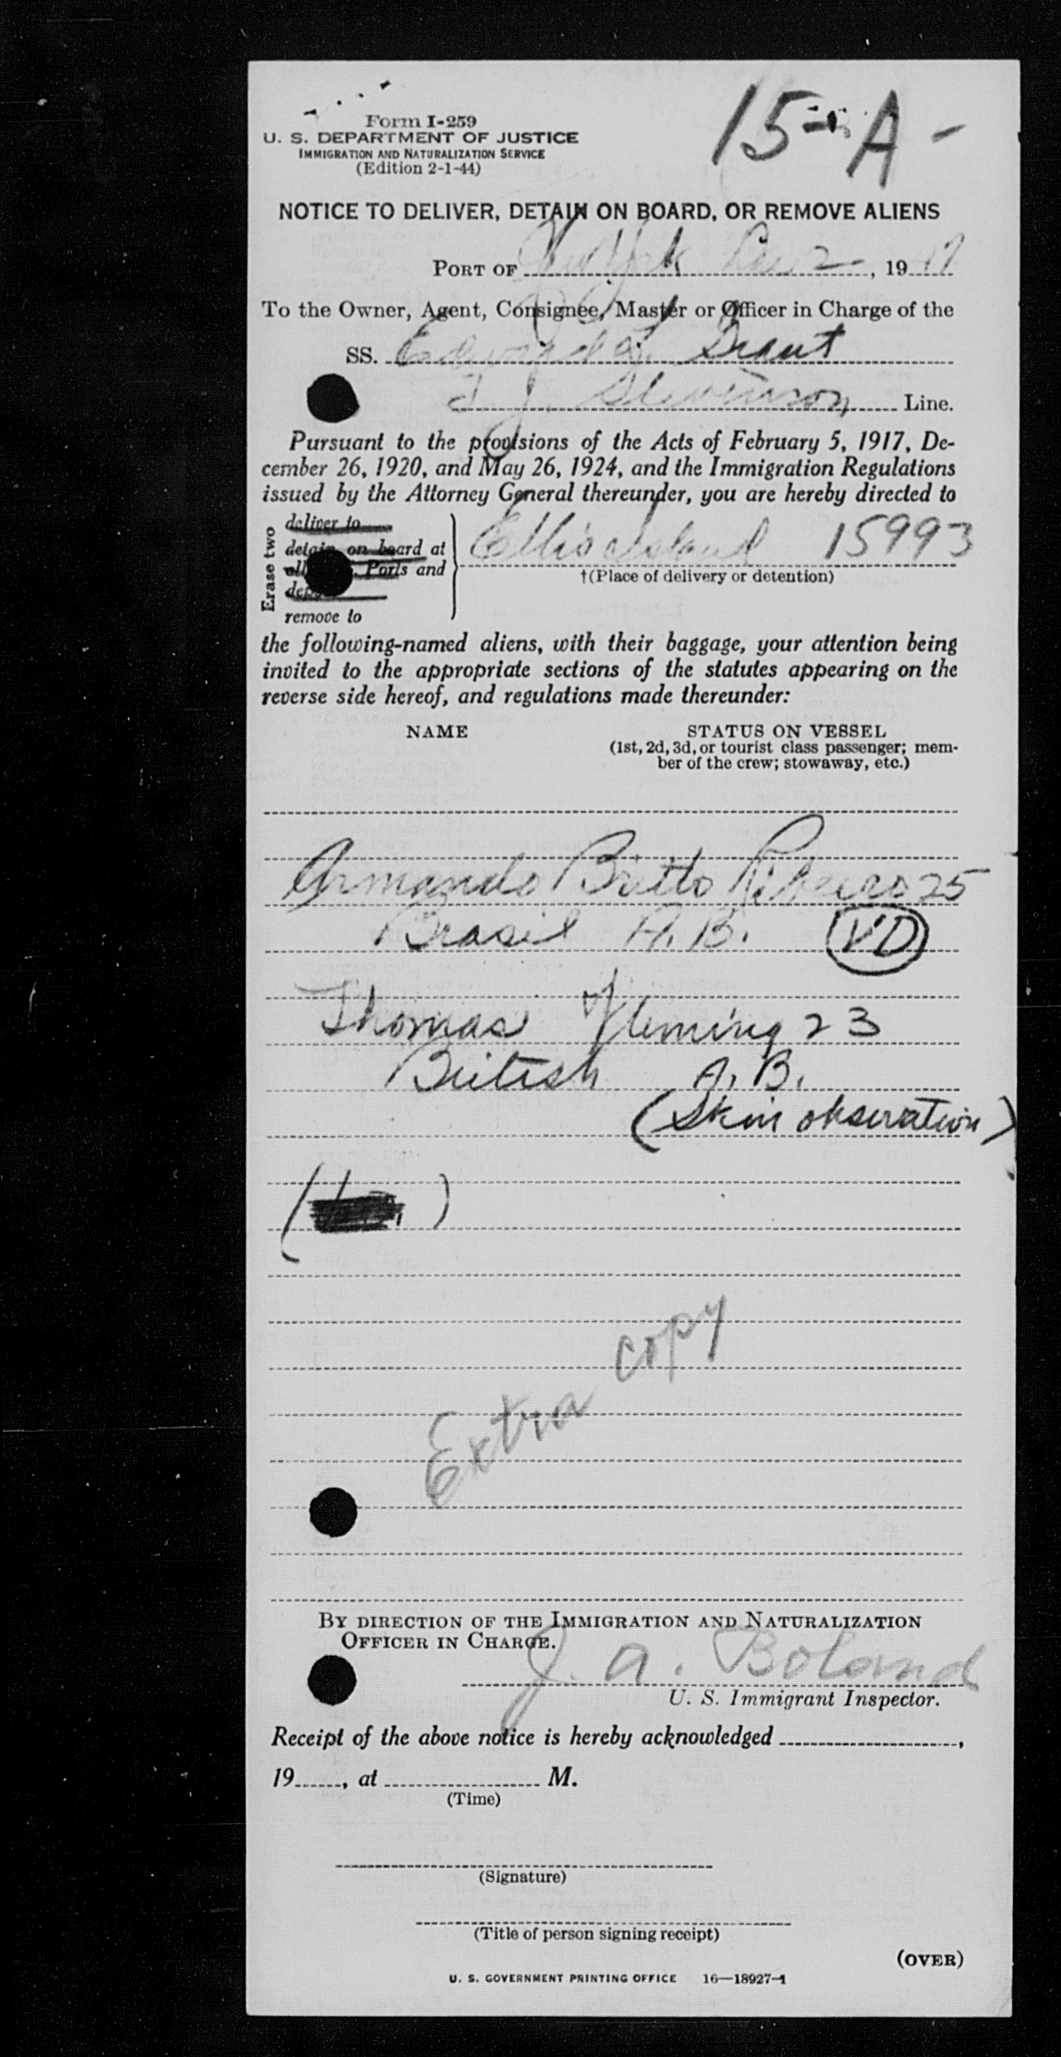 15-A-
Form I-259
U. S. DEPARTMENT OF JUSTICE
IMMIGRATION AND NATURALIZATION SERVICE
(Edition 2-1-44)
NOTICE TO DELIVER, DETAIN ON BOARD, OR REMOVE ALIENS
PORT OF New York 2, 19
To the Owner, Agent, Consignee, Master or Officer in Charge of the
SS. Edward L. Grant
T J. Stevenson Line.
Pursuant to the provisions of the Acts of February 5, 1917, De-
cember 26, 1920, and May 26, 1924, and the Immigration Regulations
issued by the Attorney General thereunder, you are hereby directed to
Erase two
deliver to
detain on board at
Ports and
remove to
Ellis Island 15993
†(Place of delivery or detention)
the following-named aliens, with their baggage, your attention being
invited to the appropriate sections of the statutes appearing on the
reverse side hereof, and regulations made thereunder:
NAME STATUS ON VESSEL
(1st, 2d, 3d, or tourist class passenger; mem-
ber of the crew; stowaway, etc.)
Armando Britto Ribeiro 25
Brasil A.B. VD
Thomas Fleming 23
British A.B.
(Skin obseration)
( )
Extra copy
BY DIRECTION OF THE IMMIGRATION AND NATURALIZATION
OFFICER IN CHARGE.
J. A. Boland
U. S. Immigrant Inspector.
Receipt of the above notice is hereby acknowledged ,
19 , at M.
(Time)
(Signature)
(Title of person signing receipt)
(OVER)
U. S. GOVERNMENT PRINTING OFFICE 16—18927-1